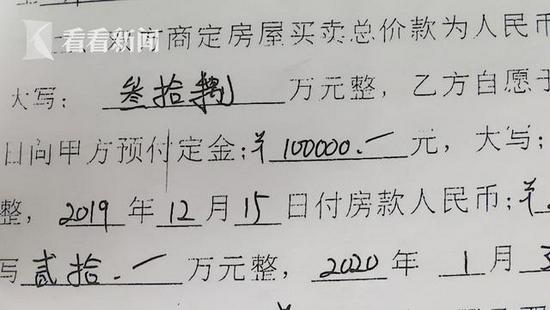 看看新闻
商定房屋买卖总价款为人民币
大写: 叁拾 万元整,乙方自愿于
日向甲方预付定金;¥100000.一元,大写;
整,2019年12月15日付房款人民币;¥
写贰拾.一万元整,2020年1月